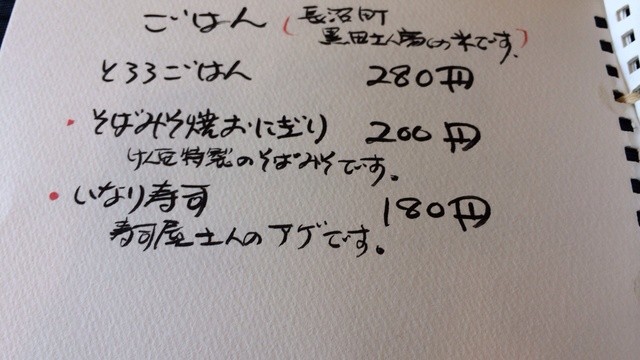 ごはん(長沼町
黒田さん家の米です。)
とろろごはん 280円
・そばみそ焼おにぎり 200円
特製のそばみそです。
・いなり寿司 180円
寿司屋さんのアゲです。